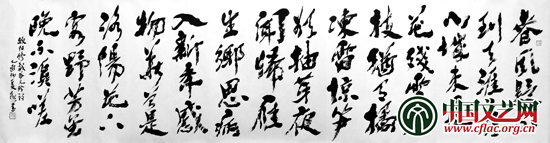 春風疑不
到天涯二月
山城未見
花殘雪壓
枝猶有橘
凍雷驚筍
欲抽芽夜
聞歸雁
生鄉思病
入新年感
物華曾是
洛陽花下
客野芳雖
晚不須嗟
歐陽修戲答元珍詩
中国文艺网
www.cflac.org.cn